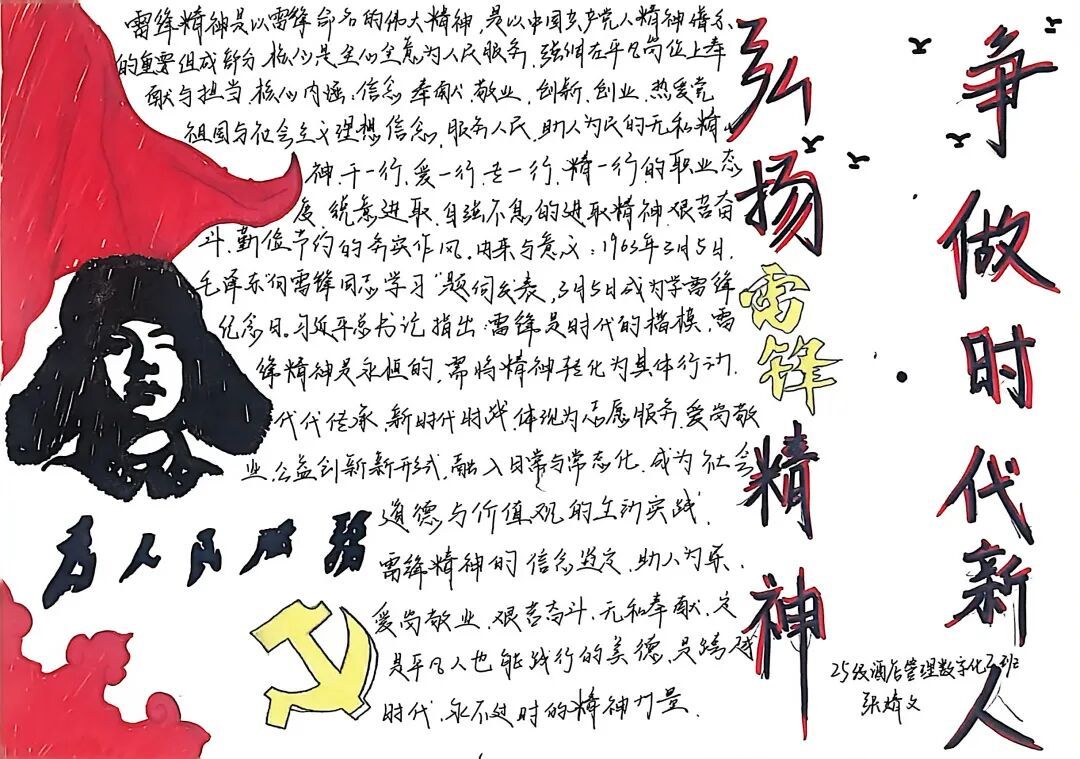 弘扬雷锋精神
争做时代新人
雷锋精神是以雷锋命名的伟大精神,是以中国共产党人精神谱系
的重要组成部分.核心是全心全意为人民服务.强调在平凡岗位上奉
献与担当.核心内涵:信念奉献.敬业.创新.创业.热爱党
祖国与社会主义理想信念.服务人民.助人为民的无私精
神.干一行,爱一行.专一行.精一行的职业态
度 锐意进取.自强不息的进取精神.艰苦奋
斗.勤俭节约的务实作风.由来与意义:1963年3月5日.
毛泽东"向雷锋同志学习"题词发表,3月5日成为学雷锋
纪念日.习近平总书记指出:雷锋是时代的楷模.雷
锋精神是永恒的.需将精神转化为具体行动.
代代传承.新时代时战.体现为志愿服务.爱岗敬
业.公益创新新形式.融入日常与常态化.成为社会
道德与价值观的生动实践.
雷锋精神的信念坚定.助人为乐.
爱岗敬业.艰苦奋斗.无私奉献.定
是平凡人也能践行的美德.是跨越
时代.永不过时的精神力量.
为人民服务
25级酒店管理数字化2班
张婧文